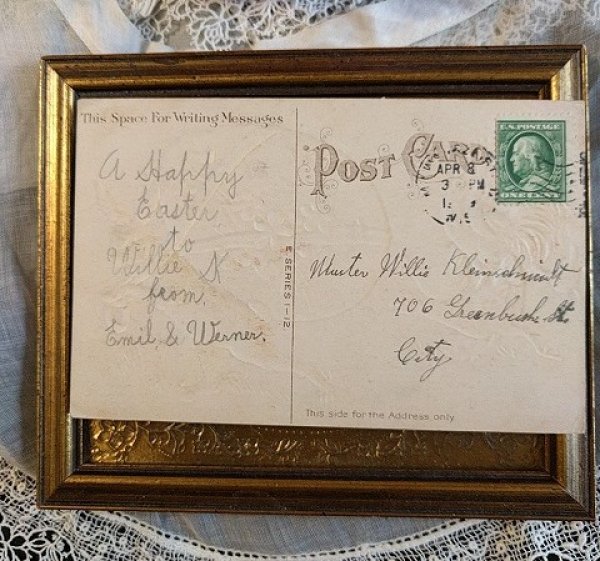 This Space For Writing Messages
A Happy
Easter
to
Willie K
from,
Emil & Werner.
E SERIES 1-12
POST CARD
U.S. POSTAGE
ONE CENT
APR 8
3 PM
WIS
Master Willie Kleinschmidt
706 Greenbush St.
City
This side for the Address only